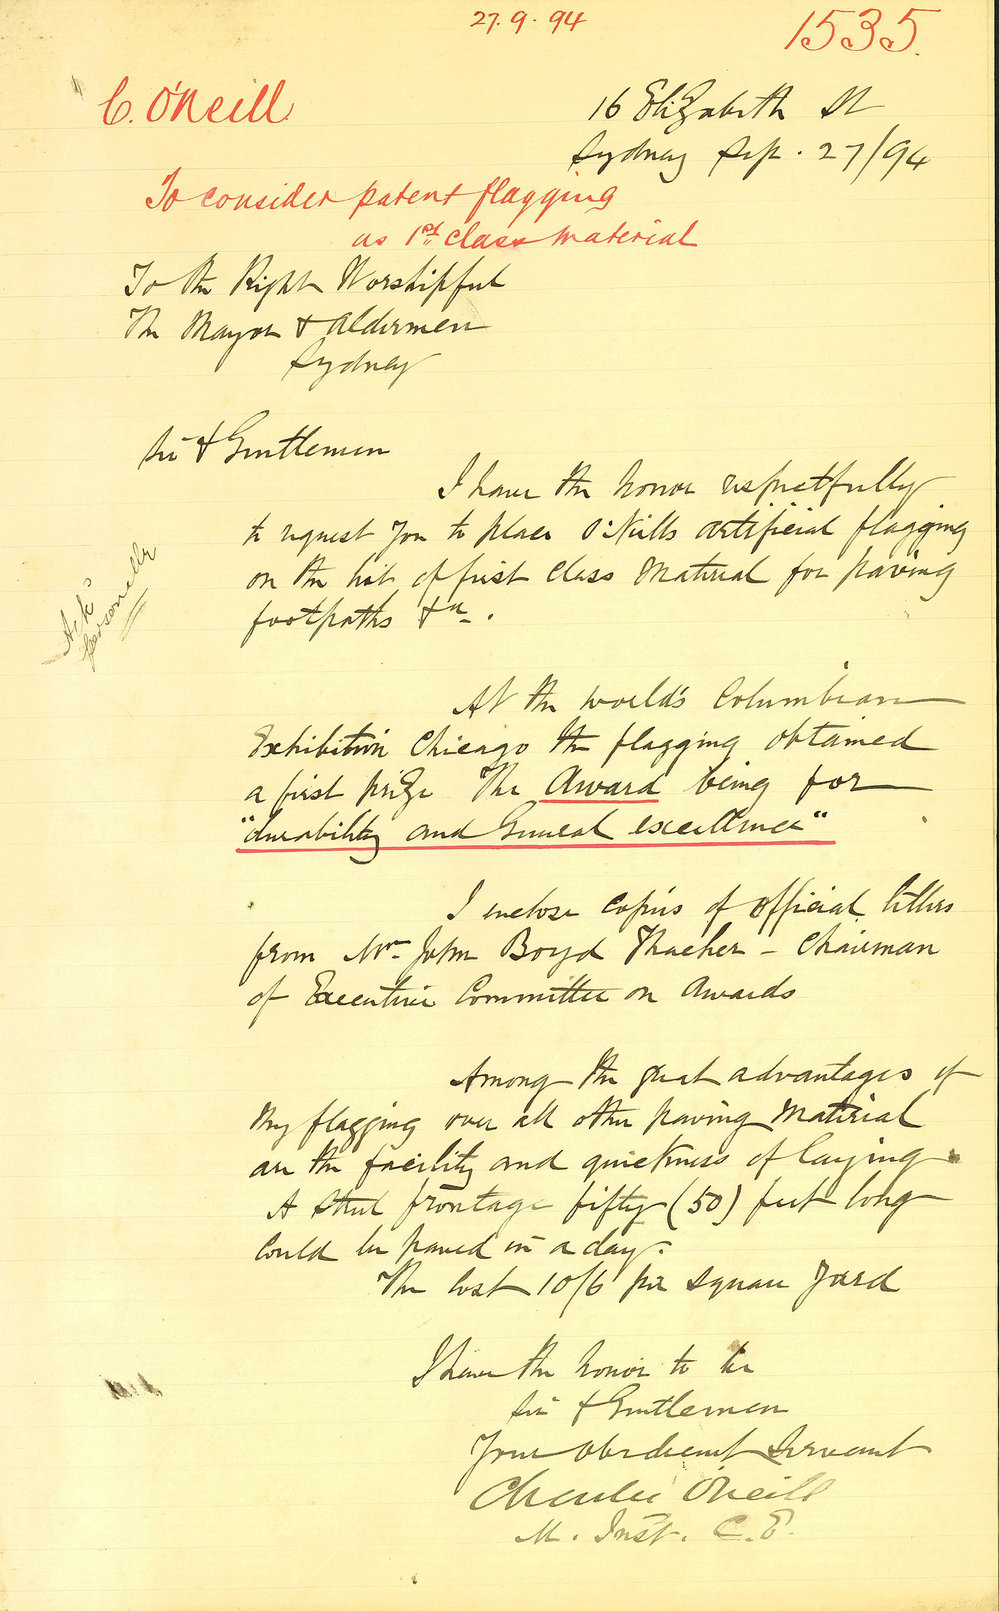 27.9.94
1535.
C. O'Neill
16 Elizabeth St
Sydney Sep. 27/94
To consider patent flagging
as 1st class material
To the Right Worshipful
The Mayor & Aldermen
Sydney
Sir & Gentlemen
I have the honor respectfully
to request you to place O'Neills artificial flagging
on the list of first class material for paving
footpaths &a.
Ackd
personally
At the World's Columbian
Exhibition Chicago the flagging obtained
a first prize The Award being for
"durability and General excellence"
I enclose copies of official letters
from Mr John Boyd Thacher - Chairman
of Executive Committee on Awards
Among the great advantages of
my flagging over all other paving material
are the facility and quickness of laying.
A street frontage fifty (50) feet long
could be paved in a day.
The cost 10/6 per square yard
I have the honor to be
Sir & Gentlemen
Your obedient Servant
Charles O'Neill
M. Inst. C.E.